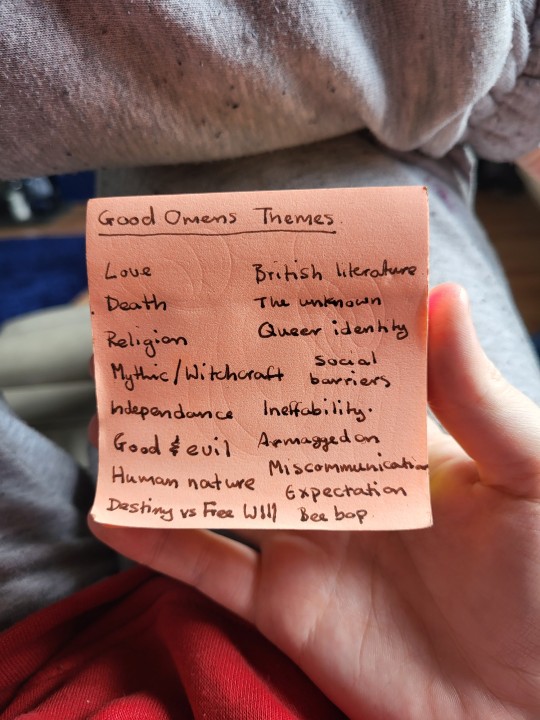 Good Omens Themes.
Love
Death
Religion
Mythic/Witchcraft
Independance
Good & evil
Human nature
Destiny vs Free Will
British literature
The unknown
Queer identity
social
barriers
Ineffability.
Armaggedon
Miscommunication
Expectation
Bee bop.